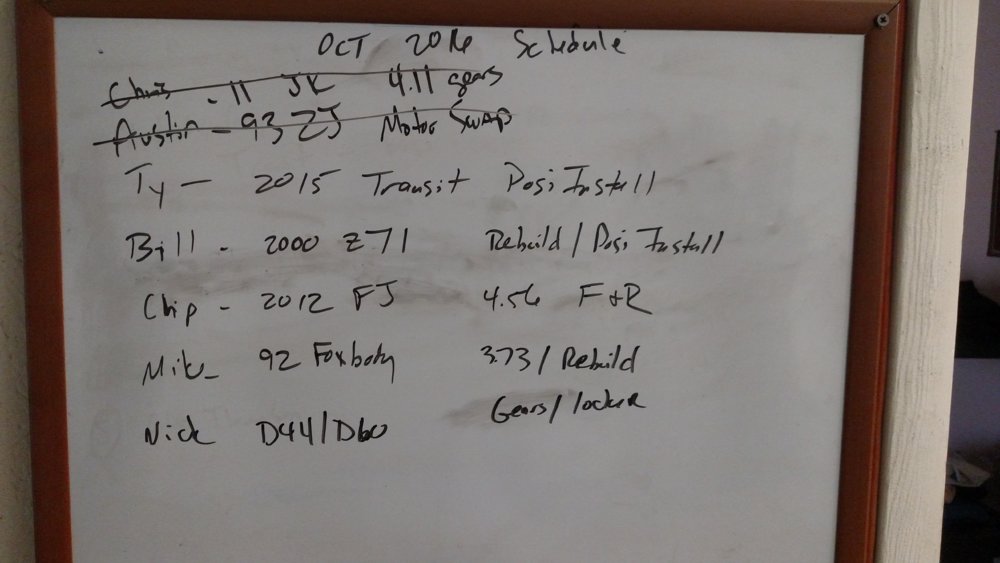 OCT 2016 Schedule
Chris - 11 JK 4.11 gears
Austin - 93 ZJ Motor Swap
Ty - 2015 Transit Posi Install
Bill - 2000 Z71 Rebuild / Posi Install
Chip - 2012 FJ 4.56 F+R
Mike - 92 Foxbody 3.73 / Rebuild
Nick D44/D60 Gears / locker